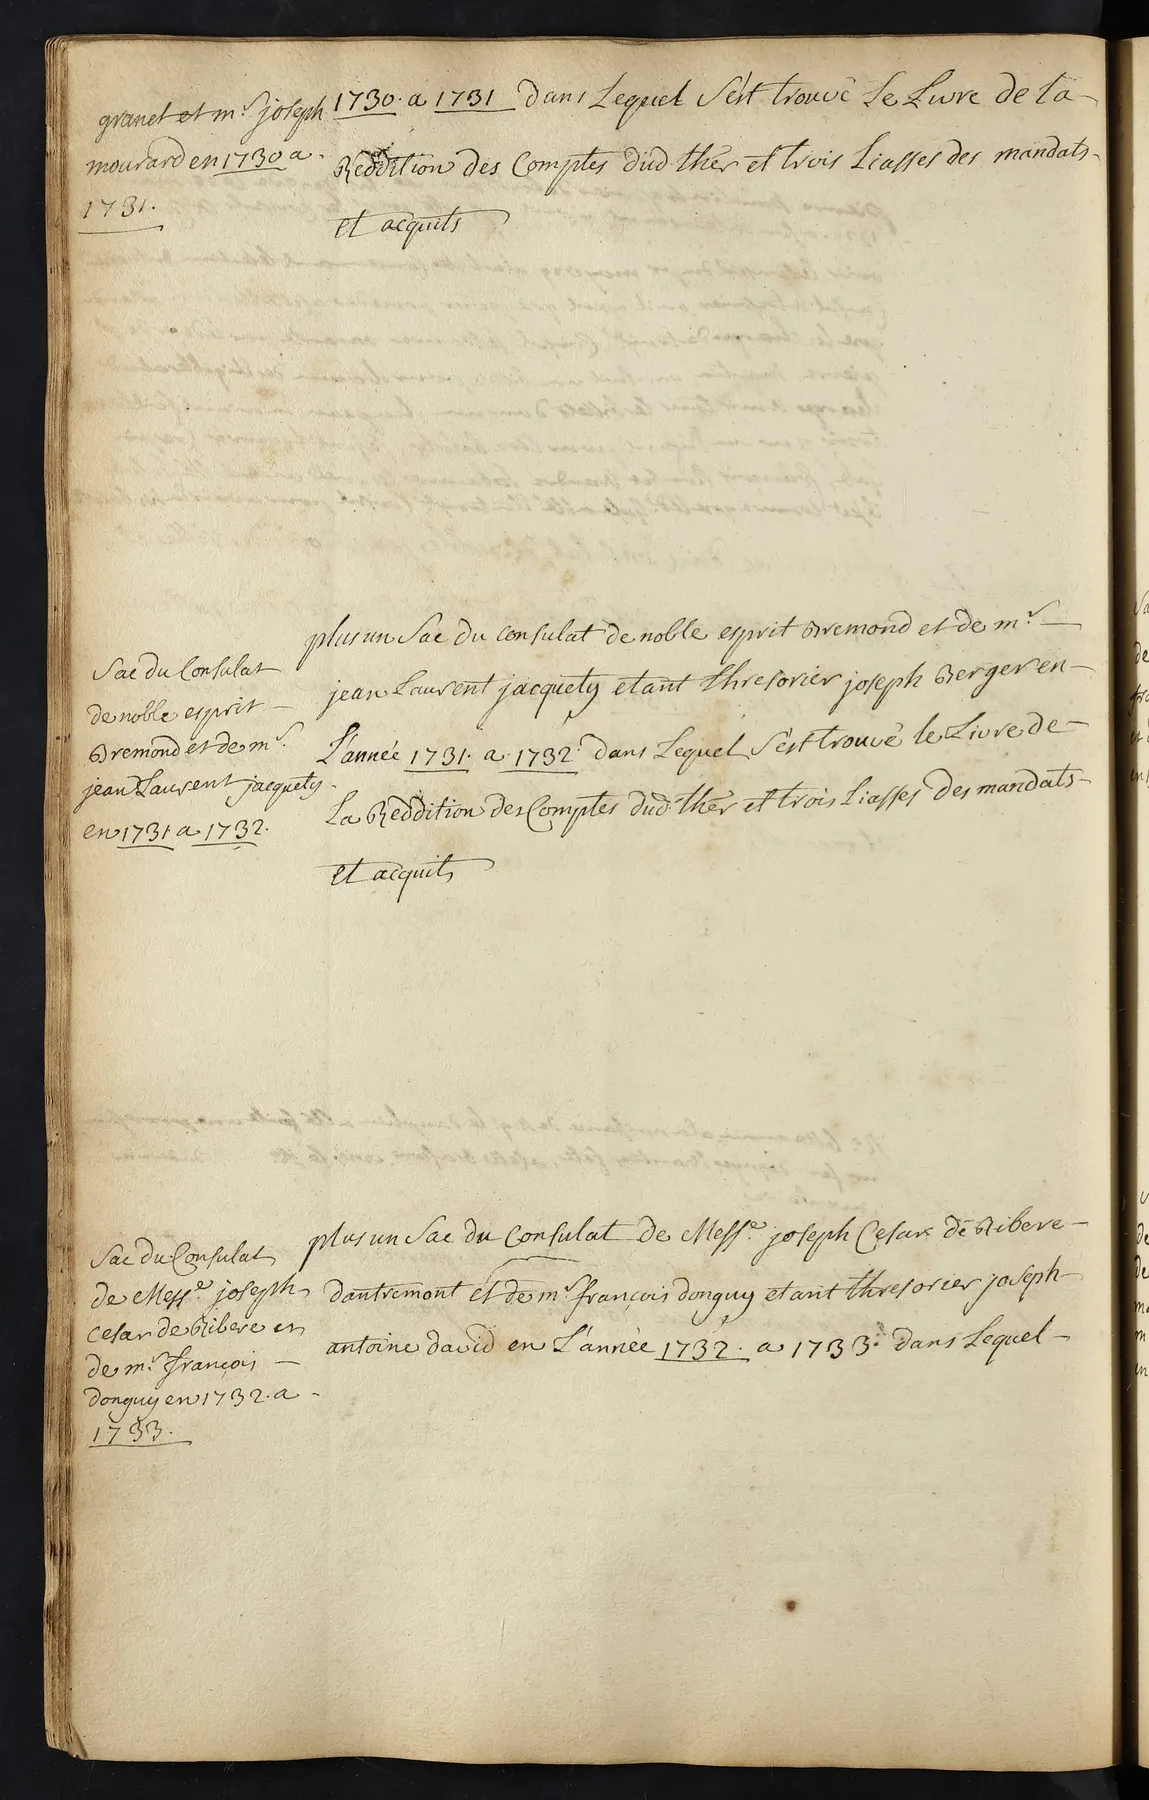 granet et m.r joseph
mourard en 1730 a
1731.
1730. a 1731 dans Lequel S'est trouvé Le Livre de la
Reddition des Comptes dud ther et trois Liasses des mandats
et acquits
Sac du Consulat
de noble esprit
Bremond et de m.r
jean Laurent jacquety
en 1731 a 1732.
plus un Sac du consulat de noble esprit Bremond et de m.r
jean Laurent jacquety etant thresorier joseph Berger en
L'année 1731. a 1732. dans Lequel S'est trouvé le Livre de
La Reddition des Comptes dud ther et trois Liasses des mandats
et acquits
Sac du Consulat
de Mess.e joseph
Cesar de Ribere et
de m.r françois
donguy en 1732. a
1733.
plus un Sac du Consulat de Mess.e joseph Cesar de Ribere
dantremont et de m.r françois donguy etant thresorier joseph
antoine david en L'année 1732. a 1733. dans Lequel